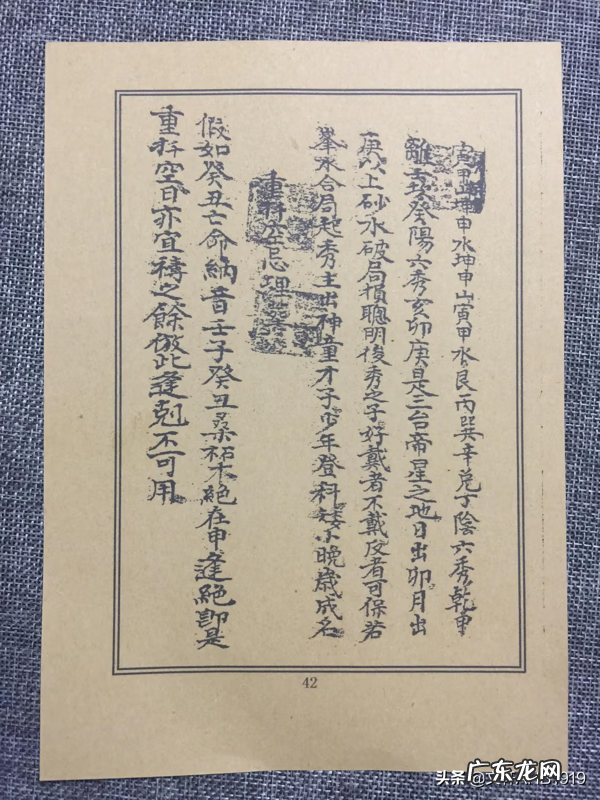 寅甲坤申水坤申山寅甲水艮丙巽辛兌丁陰六秀乾甲
離癸陽六秀亥卯庚是三台帝星之地日出卯月出
庚以上砂水破局損聰明後秀之子好戴者不戴反者可保若
峯水合局起秀主出神童才子少年登科矮小晚歲成名
重忌
假如癸丑亡命納音壬子癸丑桑柘木絕在申逢絕卽是
重空日亦宜禱之餘倣此逢剋不可用
42
头条
1919
广东龙网